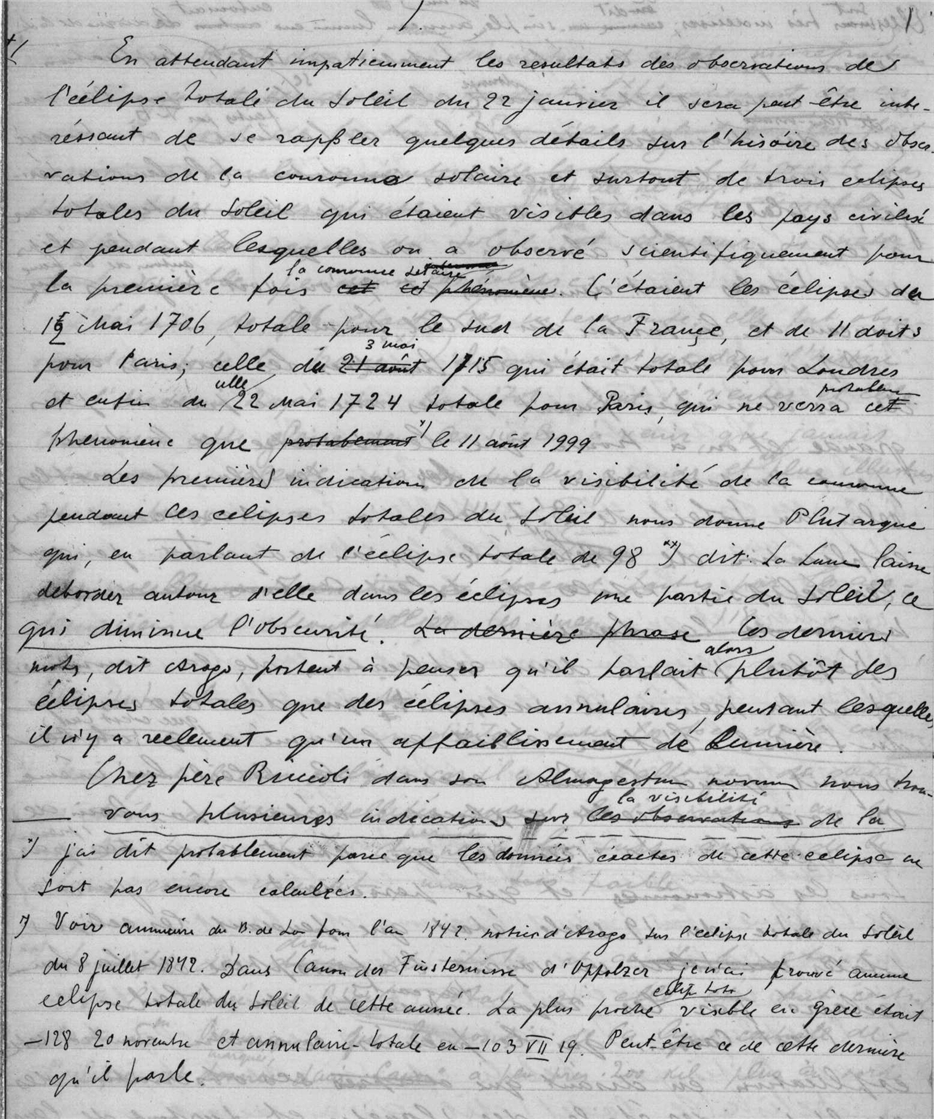 En attendant impatiemment les résultats des observations de
l'éclipse totale du Soleil du 22 janvier il sera peut-être inte-
ressant de se rappler quelques détails sur l'hisoire des obser-
vations de la couronne solaire et surtout de trois eclipses
totales du Soleil qui étaient visibles dans les pays civilisé
et pendant lesquelles on a observé scientifiquement pour
la couronne solaire
la première fois cet phénomène. C'étaient les éclipses du
12 Mai 1706, totale pour le sud de la France, et de 11 doits
3 mai
pour Paris; celle du 21 août 1715 qui était totale pour Londres
celle
et enfin du 22 Mai 1724 totale pour Paris, qui ne verra cet
phenomène que probabement 1) le 11 août 1999
Les première indication de la visibilité de la couronne
pendant les eclipses totales du Soleil nous donne Plutarque
qui, en parlant de l'éclipse totale de 98 xx) dit: La Lune laisse
déborder autour d'elle dans les éclipses une partie du Soleil, ce
qui diminue l'obscurité. La dernière phrase les derniers
alors
mots, dit Arago, portent à penser qu'il parlait plutôt des
éclipses totales que des éclipses annulaires, pensant lesquelles
il n'y a reelement qu'un affaiblissement de lumière.
Chez père Riccioli dans son Almagestum novum nous trou-
la visibilité
vons plusieures indications sur les observations de la
1) j'ai dit probablement parce que les données exactes de cette eclipse ne
sont pas encore calculées.
Voir annuaire du B. de Lon pour l'an 1842. notice d'Arago sur l'éclipse totale du Soleil
du 8 juillet 1842. Dans Canon der Finsternisse d'Oppolzer je n'ai trouvé aucune
eclip tota
eclipse totale du Soleil de cette année. La plus proche visible en grèce était
–128 20 novembre et annulaire-totale en –103 VII 19. Peut-être ce de cette dernière
qu'il parle.